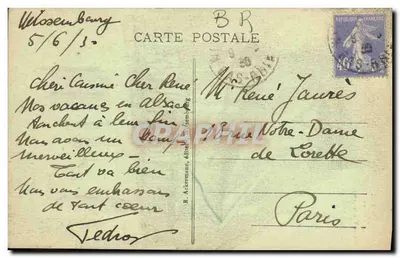 Wissembourg
5/6/30
BR
CARTE POSTALE
RÉPUBLIQUE FRANÇAISE
BAS-RHIN
Cheri Cher René
Nos vacances en alsace
touchent à leur fin
Nous avons un temps
merveilleux -
Tout va bien
Nous vous embrassons
de tout coeur
Pedro
M René Jaurès
Notre-Dame
de Lorette
Paris
R. Ackermann,
Cartes